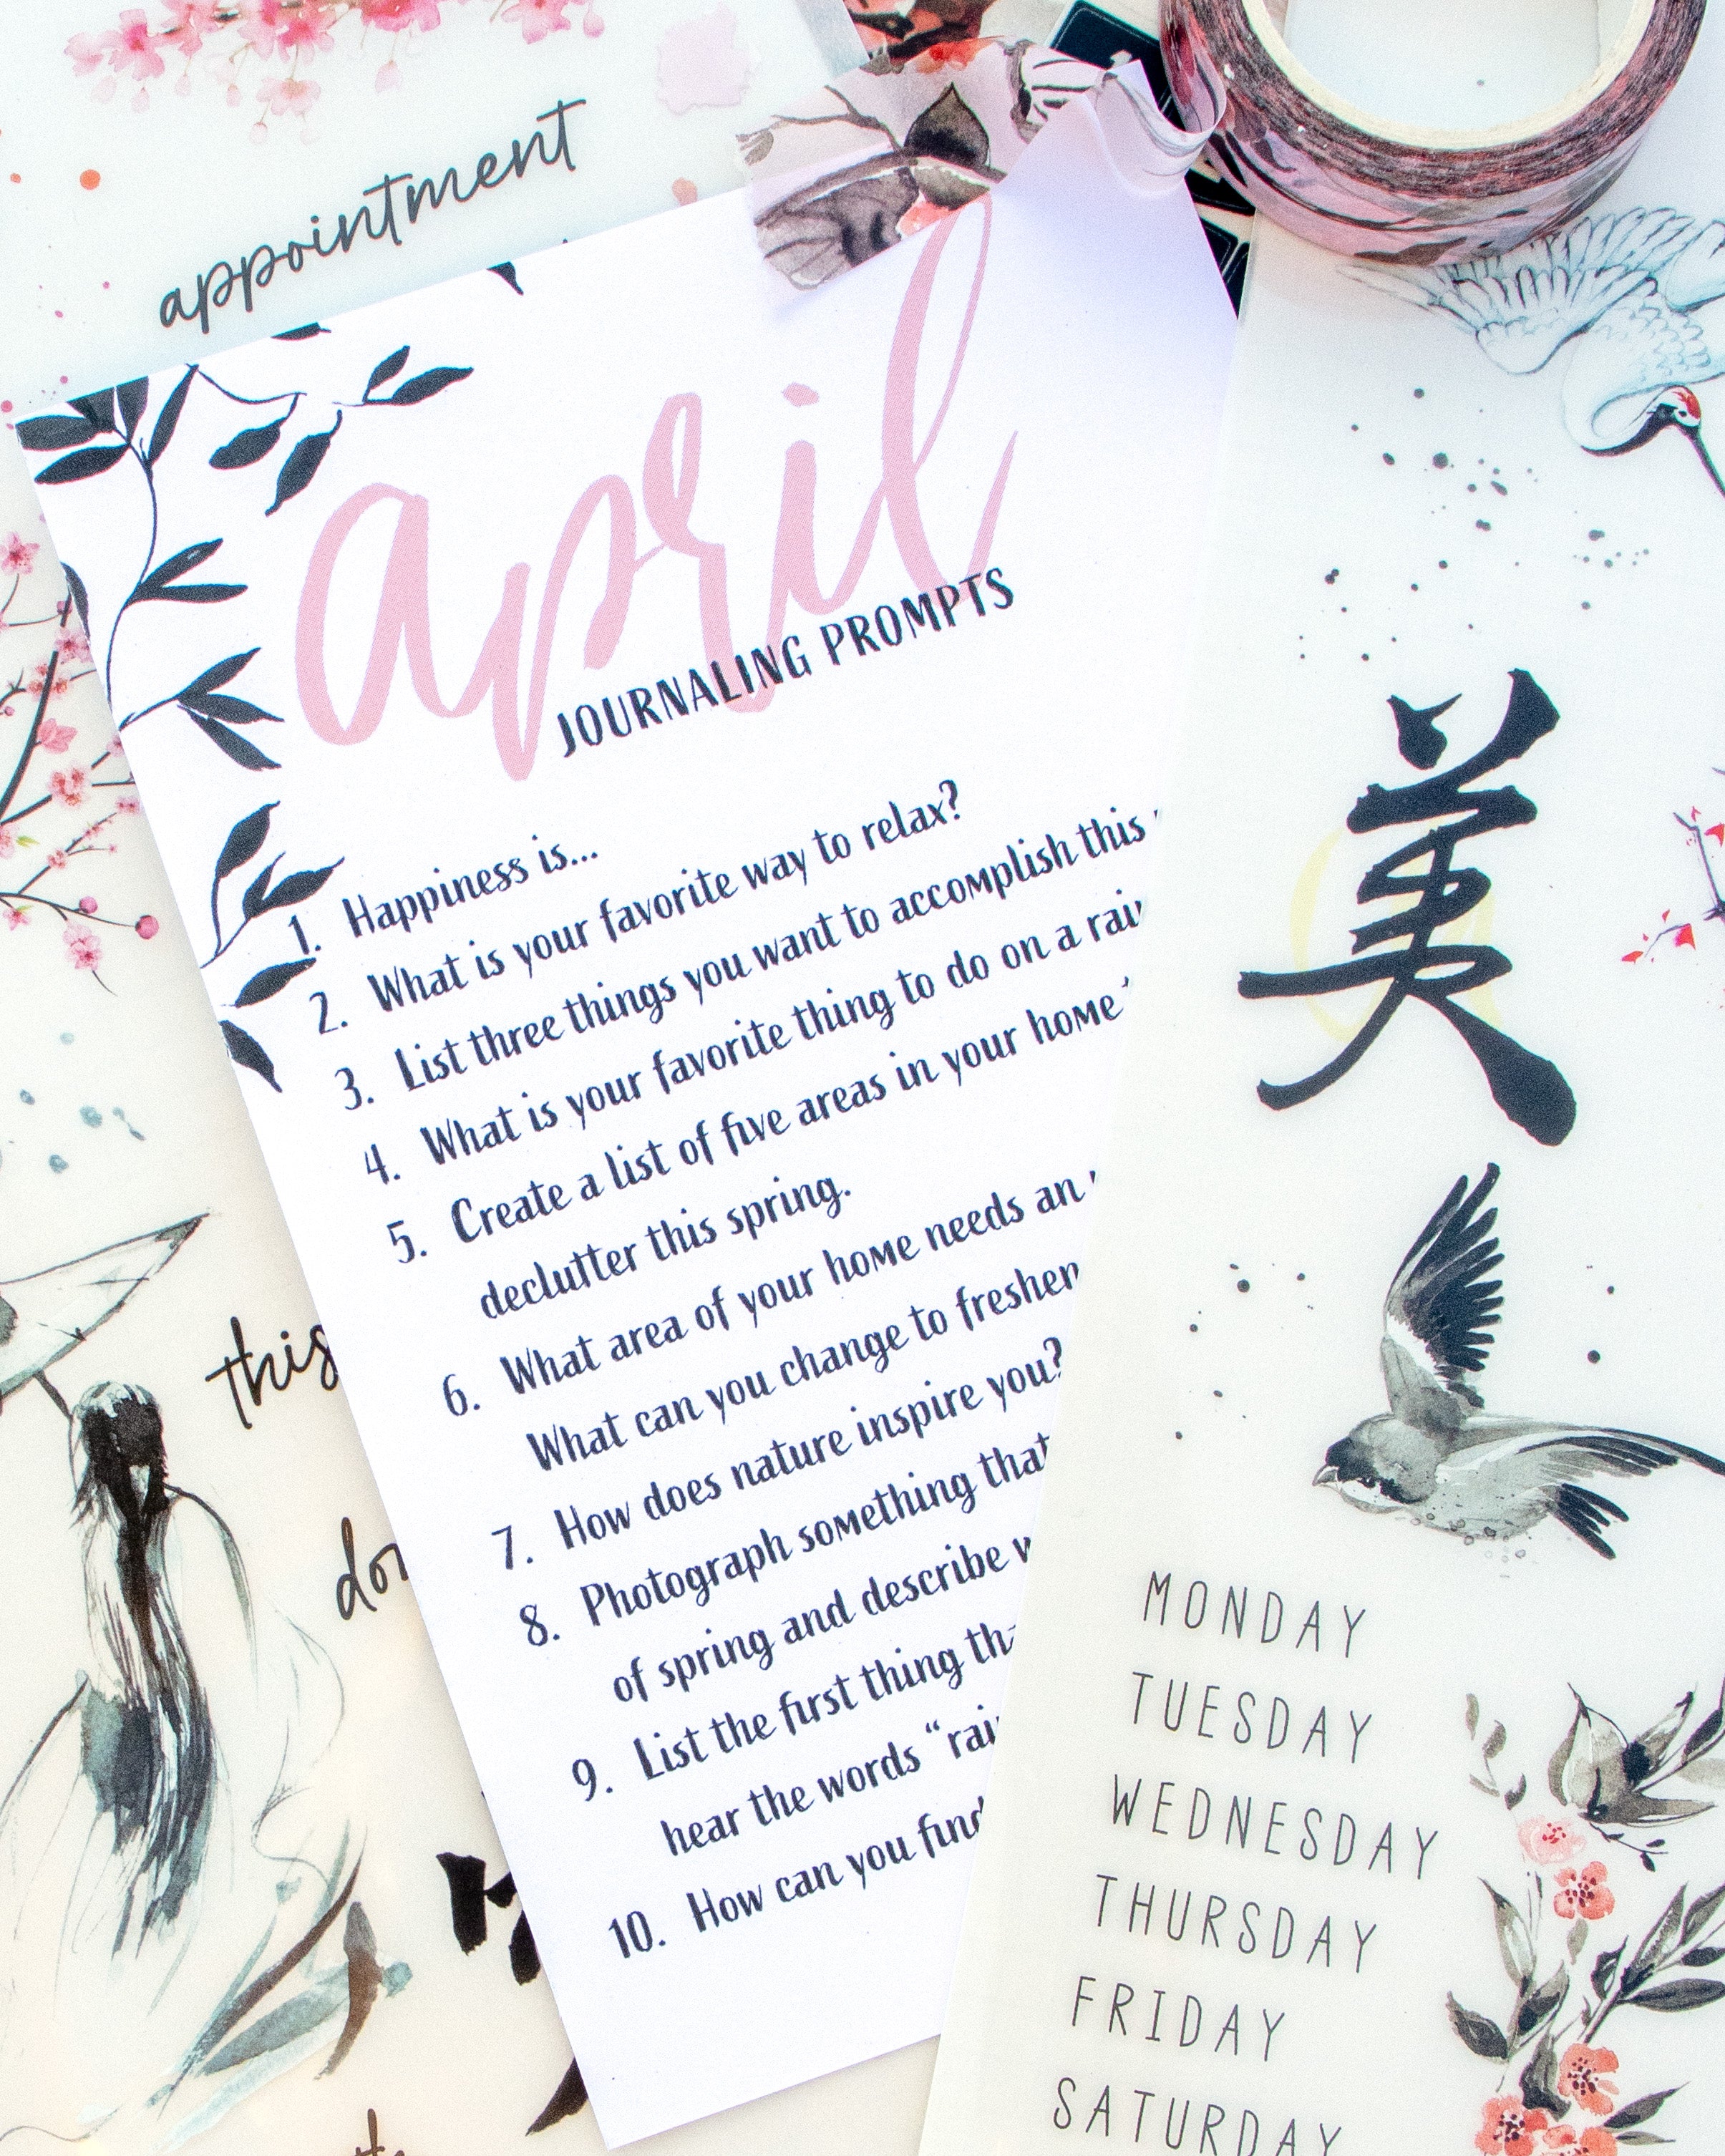 appointment
april
JOURNALING PROMPTS
1. Happiness is...
2. What is your favorite way to relax?
3. List three things you want to accomplish this
4. What is your favorite thing to do on a
5. Create a list of five areas in your home
declutter this spring.
6. What area of your home needs an
What can you change to freshen
7. How does nature inspire you?
8. Photograph something that
of spring and describe
9. List the first thing
hear the words
10. How can you find
this
美
MONDAY
TUESDAY
WEDNESDAY
THURSDAY
FRIDAY
SATURDAY